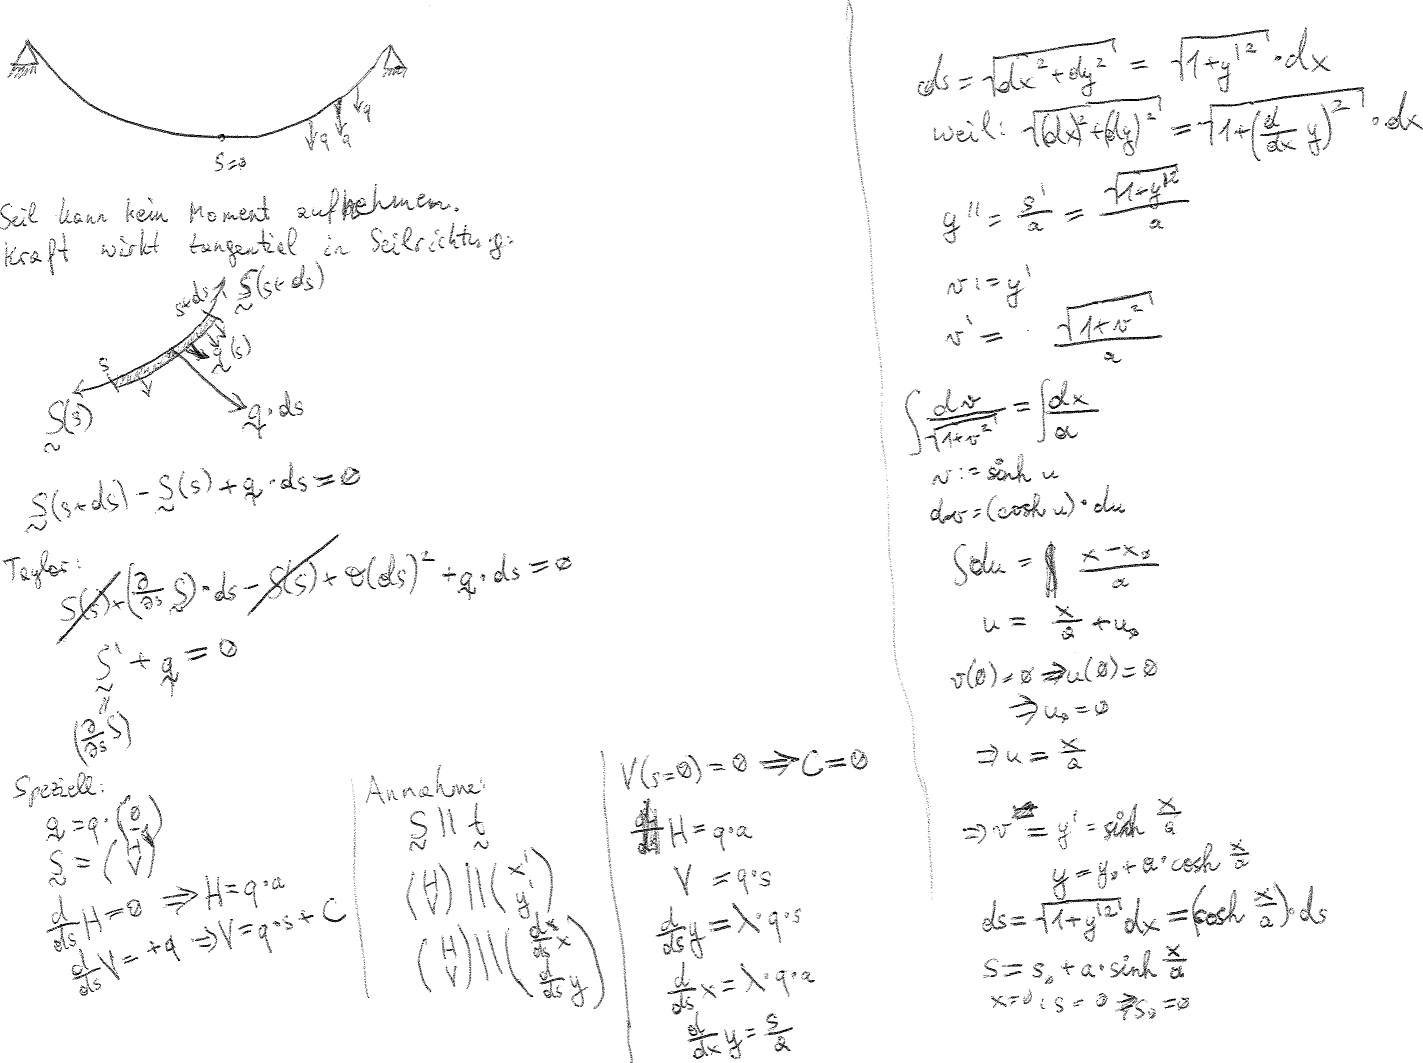 q
q
q
S=0
Seil kann kein Moment aufnehmen.
Kraft wirkt tangential in Seilrichtung.
s+ds
S(s+ds)
s
q(s)
S(s)
q·ds
S(s+ds) - S(s) + q·ds = 0
Taylor:
S(s) + (∂/∂s S)·ds - S(s) + O(ds)² + q·ds = 0
S' + q = 0
=
(∂/∂s S)
Speziell:
q = q·(0 -1)
S = (H V)
d/ds H = 0 ⇒ H = q·a
d/ds V = +q ⇒ V = q·s + C
Annahme:
S || t
(H V) || (x' y')
(H V) || (d/ds x d/ds y)
V(s=0) = 0 ⇒ C = 0
H = q·a
V = q·s
d/ds y = λ·q·s
d/ds x = λ·q·a
d/dx y = s/a
ds = √(dx² + dy²) = √(1+y'²)·dx
weil: √((dx)² + (dy)²) = √(1+(d/dx y)²)·dx
y'' = s'/a = √(1+y'²)/a
v := y'
v' = √(1+v²)/a
∫ dv/√(1+v²) = ∫ dx/a
v := sinh u
dv = (cosh u)·du
∫du = (x-x0)/a
u = x/a + u0
v(0) = 0 ⇒ u(0) = 0
⇒ u0 = 0
⇒ u = x/a
⇒ v = y' = sinh x/a
y = y0 + a·cosh x/a
ds = √(1+y'²) dx = (cosh x/a)·ds
S = s0 + a·sinh x/a
x=0 : s = 0 ⇒ s0 = 0